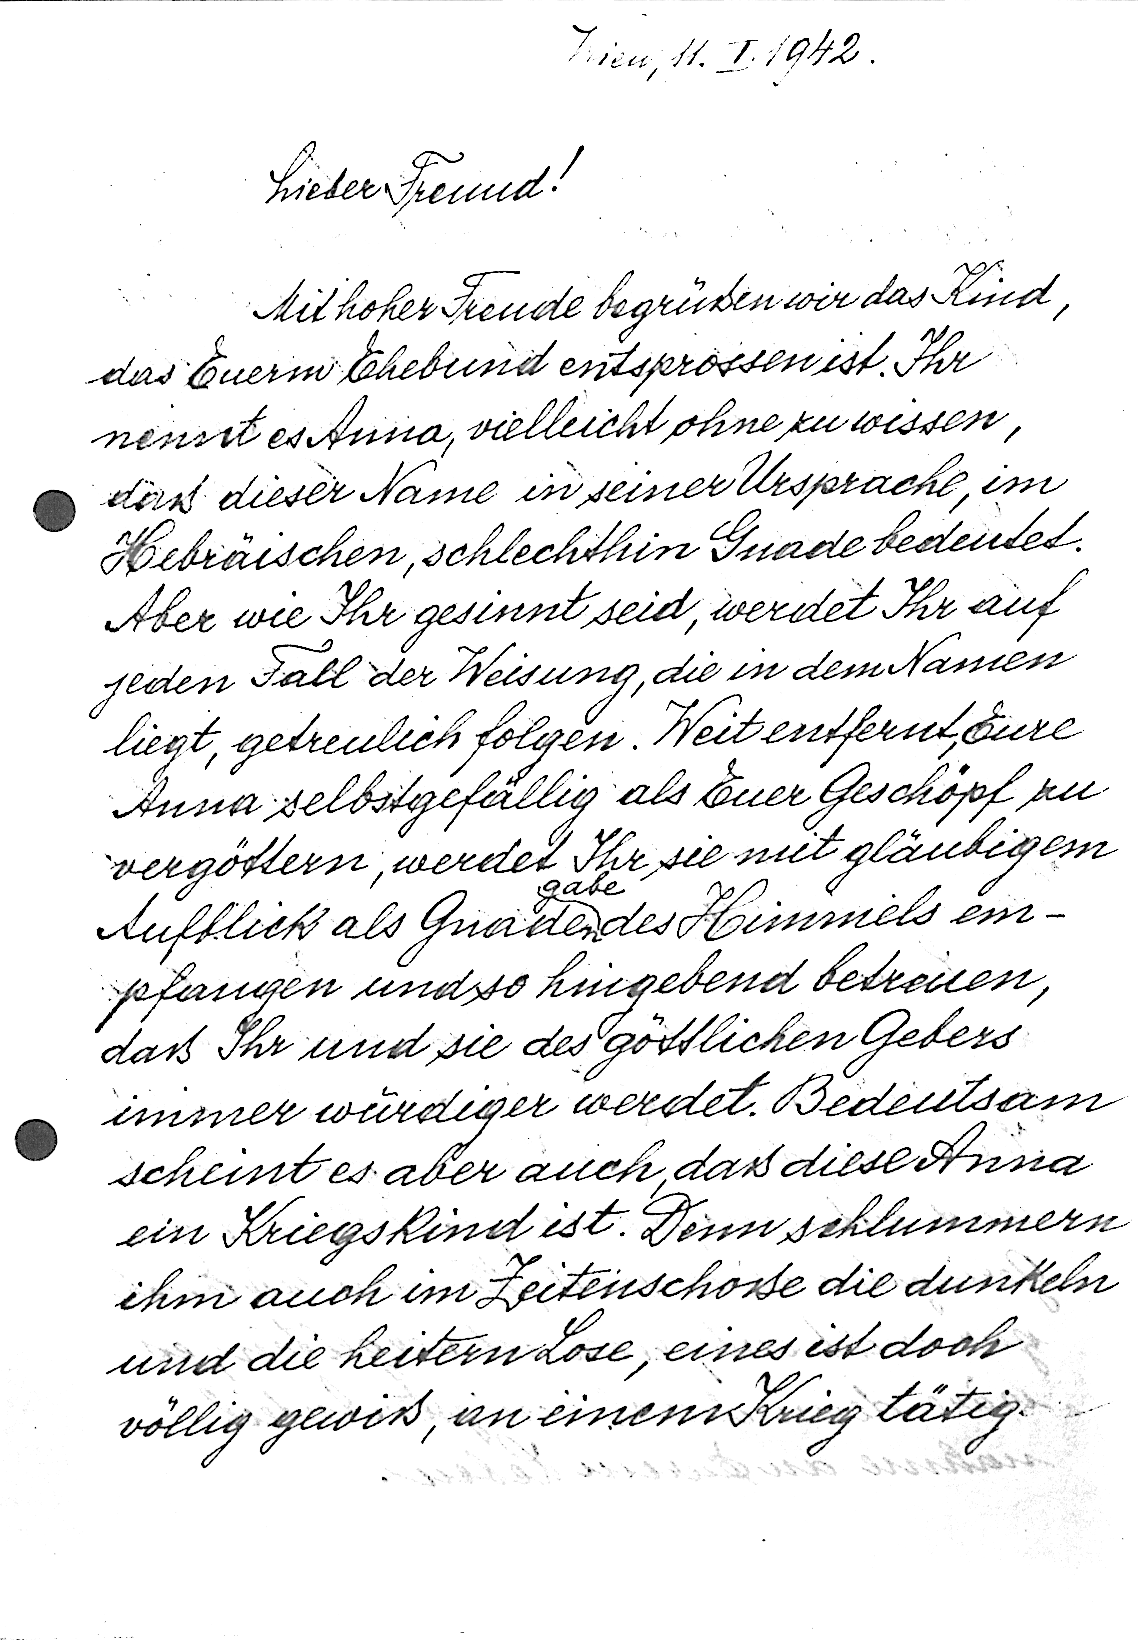 Wien, 11. I. 1942.
Lieber Freund!
Mit hoher Freude begrüßen wir das Kind,
das Euerm Ehebund entsprossen ist. Ihr
nennt es Anna, vielleicht ohne zu wissen,
daß dieser Name in seiner Ursprache, im
Hebräischen, schlechthin Gnade bedeutet.
Aber wie Ihr gesinnt seid, werdet Ihr auf
jeden Fall der Weisung, die in dem Namen
liegt, getreulich folgen. Weit entfernt, Eure
Anna selbstgefällig als Euer Geschöpf zu
vergöttern, werdet Ihr sie mit gläubigem
gabe
Aufblick als Gnaden des Himmels em-
pfangen und so hingebend betreuen,
daß Ihr und sie des göttlichen Gebers
immer würdiger werdet. Bedeutsam
scheint es aber auch, daß diese Anna
ein Kriegskind ist. Denn schlummern
ihm auch im Zeitenschoße die dunkeln
und die heitern Lose, eines ist doch
völlig gewiß, an einem Krieg tätig